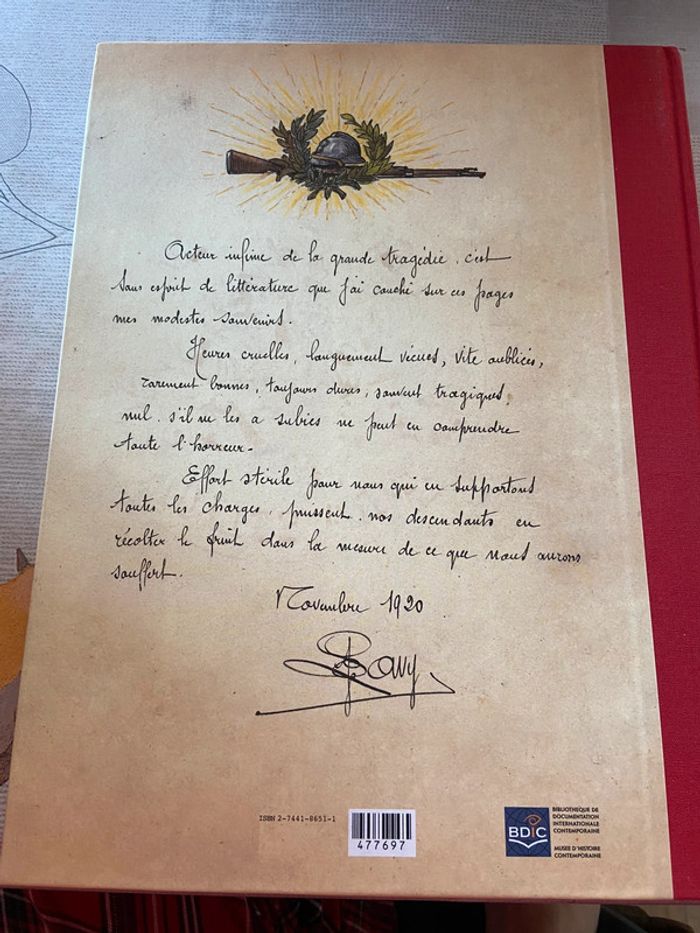 Acteur infime de la grande tragédie, c'est
sans esprit de littérature que j'ai couché sur ces pages
mes modestes souvenirs.
Heures cruelles, longuement vécues, vite oubliées,
rarement bonnes, toujours dures, souvent tragiques,
nul, s'il ne les a subies ne peut en comprendre
toute l'horreur.
Effort stérile pour nous qui en supportons
toutes les charges, puissent, nos descendants en
récolter le fruit dans la mesure de ce que nous aurons
souffert.
Novembre 1920
ISBN 2-7441-8651-1
477697
BDIC
BIBLIOTHEQUE DE
DOCUMENTATION
INTERNATIONALE
CONTEMPORAINE
MUSEE D'HISTOIRE
CONTEMPORAINE